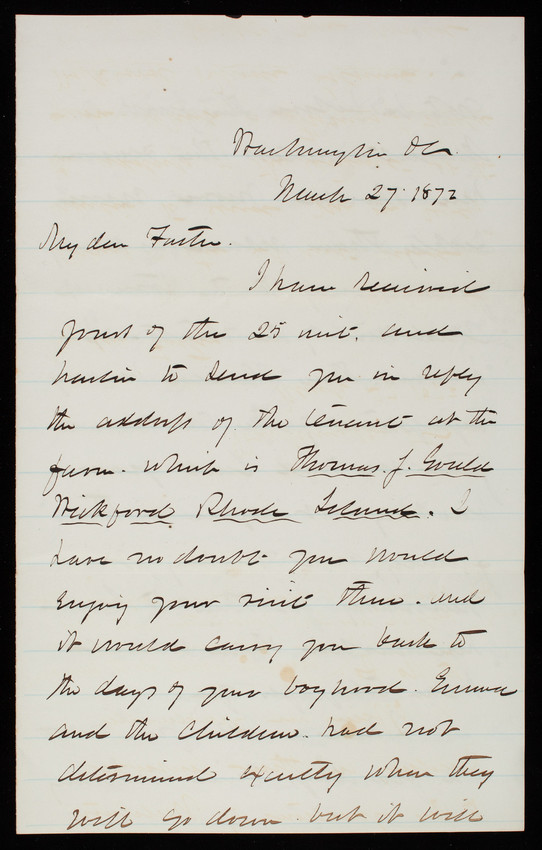 Washington DC
March 27 1872
My dear Foster.
I have received
yours of the 25 inst. and
hasten to send you in reply
the address of the tenant at the
farm. which is Thomas. J. Gould
Wickford Rhode Island. I
have no doubt you would
enjoy your visit there. and
it would carry you back to
the days of your boyhood. Emma
and the children. had not
determined exactly when they
will go down. but it will